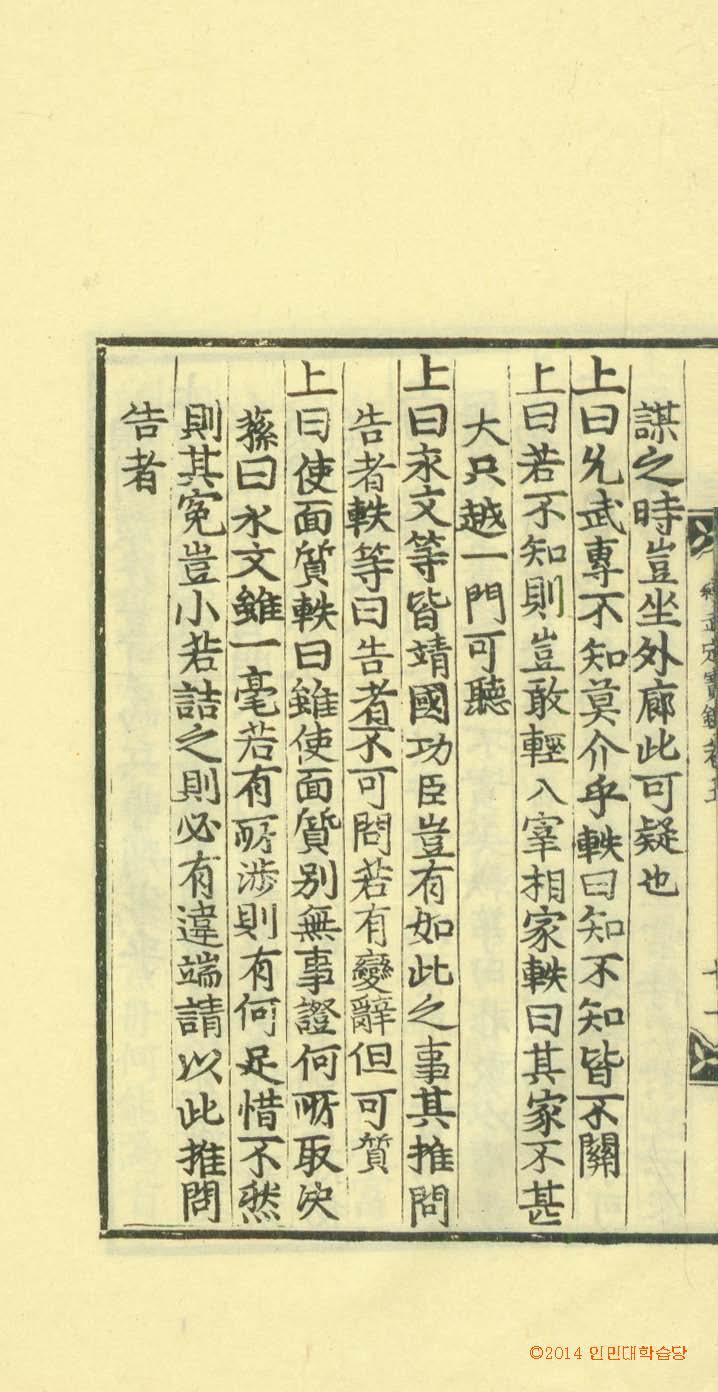 謀之時豈坐外廊此可疑也
上曰允武專不知莫介乎軼曰知不知皆不關
上曰若不知則豈敢輕入宰相家軼曰其家不甚
大只越一門可聽
上曰永文等皆靖國功臣豈有如此之事其推問
告者軼等曰告者不可問若有變辭但可質
上曰使面質軼曰雖使面質別無事證何所取決
蓀曰永文雖一毫若有所涉則有何足惜不然
則其冤豈小若詰之則必有違端請以此推問
告者
定寶鑑卷五
十一
©2014 인민대학습당